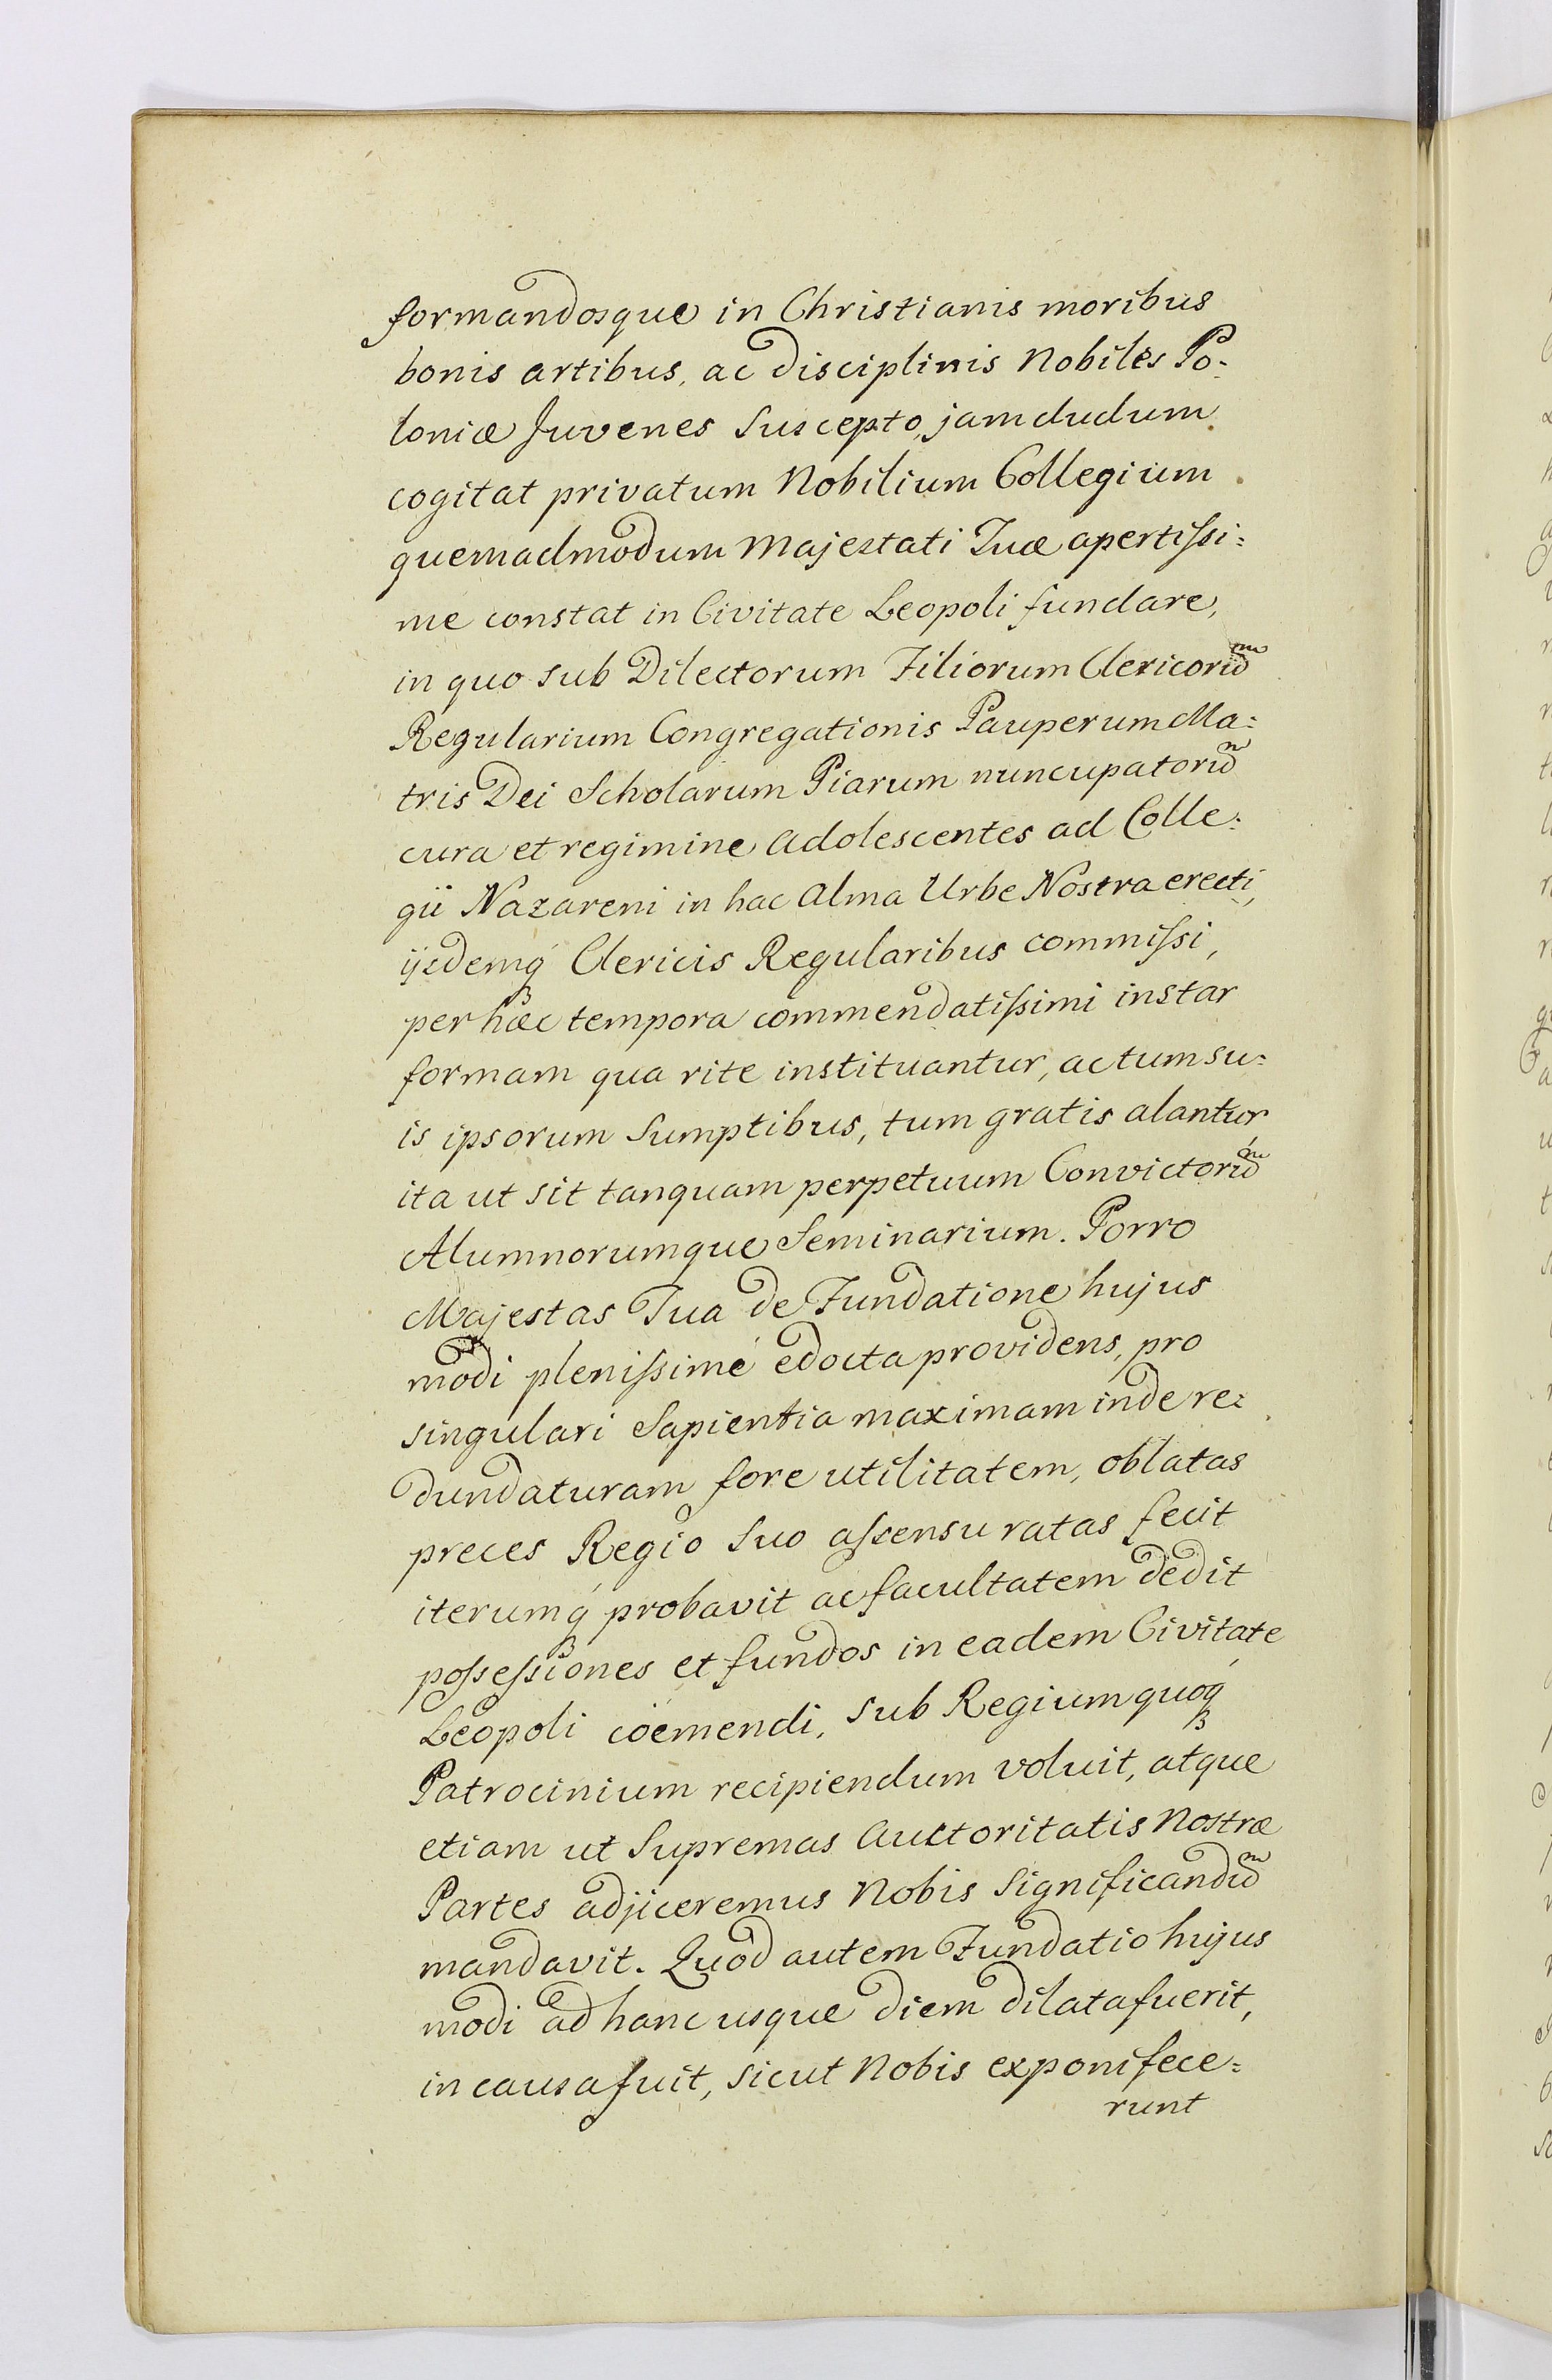 formandosque in Christianis moribus
bonis artibus, ac disciplinis Nobiles Po:
loniæ Juvenes suscepto, jamdudum
cogitat privatum Nobilium Collegium
quemadmodum Majestati Tuæ apertissi:
me constat in Civitate Leopoli fundare,
in quo sub Dilectorum Filiorum Clericorũ
Regularium Congregationis Pauperum Ma:
tris Dei Scholarum Piarum nuncupatorũ
cura et regimine Adolescentes ad Colle:
gii Nazareni in hac Alma Urbe Nostra erecti,
ijsdemq́ Clericis Regularibus commissi,
per hæc tempora commendatissimi instar
formam qua rite instituantur, ac tum su:
is ipsorum sumptibus, tum gratis alantur
ita ut sit tanquam perpetuum Convictorũ
Alumnorumque Seminarium. Porro
Majestas Tua de Fundatione hujus
modi plenissimé edocta providens, pro
singulari Sapientia maximam inde re:
dundaturam fore utilitatem, oblatas
preces Regio Suo assensu ratas fecit
iterumq́ probavit ac facultatem dedit
possessiones et fundos in eadem Civitate
Leopoli cöemendi, sub Regium quoq́
Patrocinium recipiendum voluit, atque
etiam ut Supremas Auctoritatis Nostræ
Partes adjiceremus Nobis significandũ
mandavit. Quôd autem Fundatio hujus
modi ad hanc usque diem dilata fuerit,
in causa fuit, sicut Nobis exponi fece:
runt